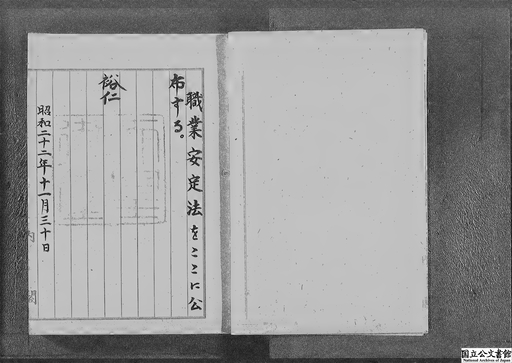 職業安定法をここに公
布する。
裕仁
昭和二十二年十一月三十日
内閣
国立公文書館
National Archives of Japan